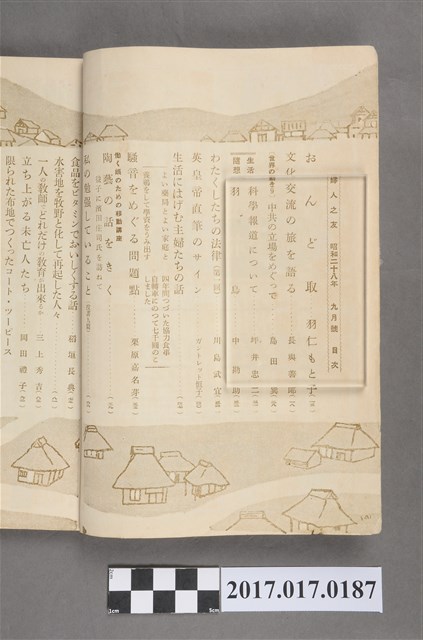 婦人之友 昭和二十八年 九月號 目次
おんどり 羽仁もと子
文化交流の旅を語る 長與善郎
世界の動き 中共の立場をめぐって 島田巽
生活 科學報道について 坪井忠二
隨想 羽 島 中勘助
わたくしたちの法律 川島武宜
英皇帝直筆のサイン ガントレット恒子
生活にはげむ主婦たちの話
よい藥局とよい家庭と
四年間つづいた協力食事
養鷄をして學資をうみ出す
自轉車にのって七千個のと
騷音をめぐる問題點 栗原嘉名芽
働く娘のための移動講座
陶藝の話をきく
益子に濱田庄司氏を訪ねて
私の勉強していること
食品をビタミンでおいしくする話 稻垣長典
水害地を牧野と化して再起した人々
一人の教師でどれだけの教育が出來るか 三上秀吉
立ち上がる未亡人たち 岡田禮子
限られた布地でつくったコート・ツーピース
2cm
1cm
5cm
2017.017.0187